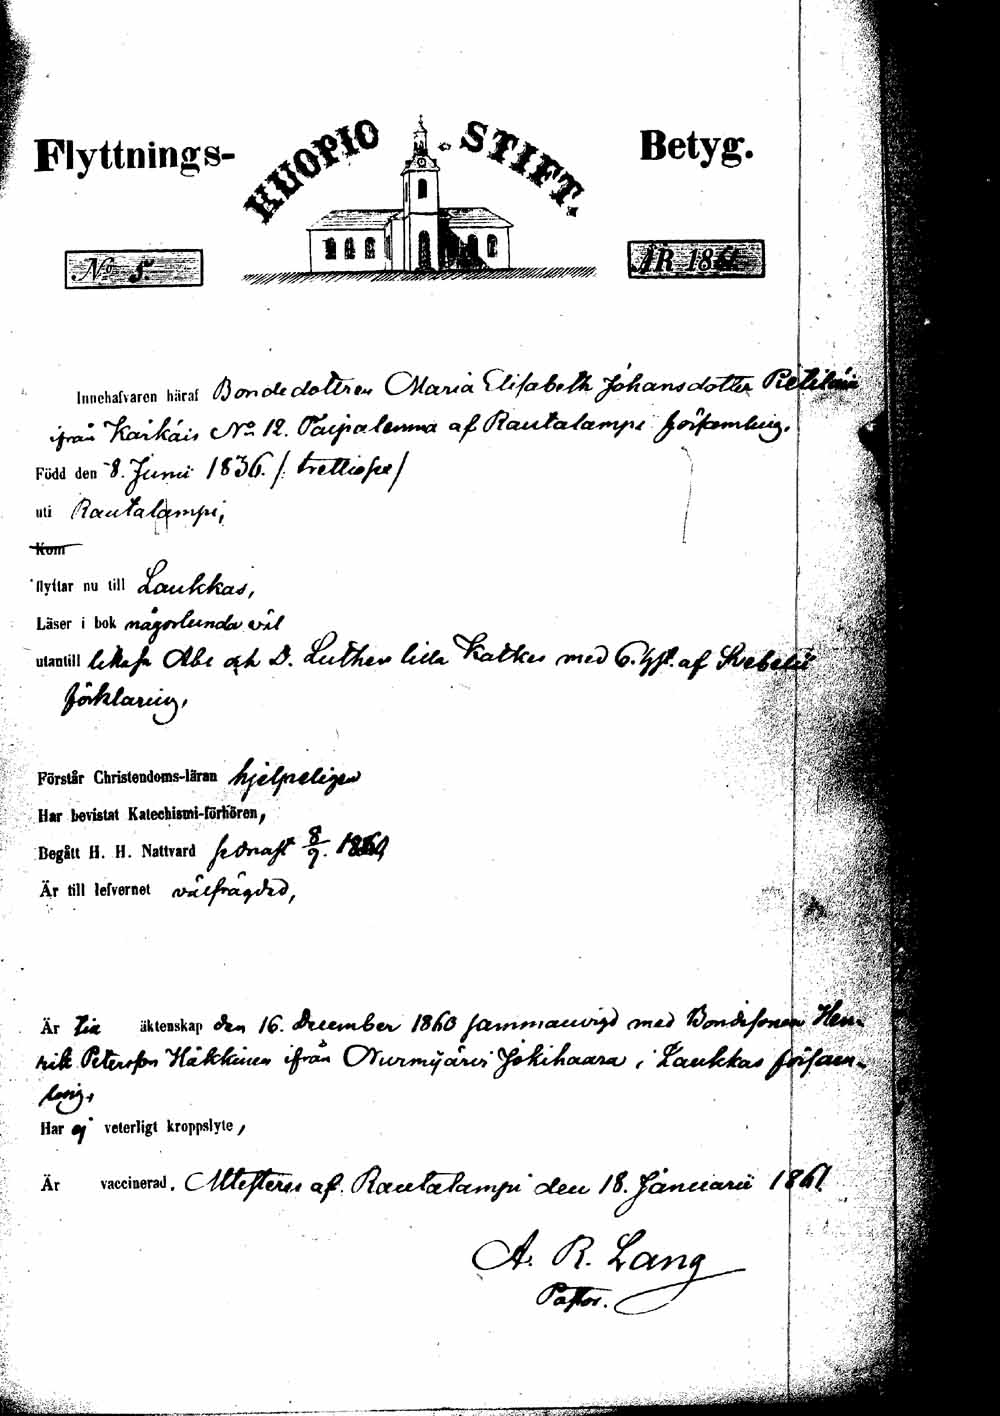 Flyttnings- KUOPIO STIFT. Betyg.
No 5. ÅR 1861.
Innehafvaren häraf Bondedottren Maria Elisabeth Johansdotter
ifrån Kärkäis No 12. af Rautalampi församling.
Född den 8. Junii 1836. /: trettiosex/
uti Rautalampi,
Kom
flyttar nu till Laukkas,
Läser i bok någorlunda väl
utantill Abc och D. Luthers lilla Katkes med 6. af Svebelii
förklaring,
Förstår Christendoms-läran hjelpeligen
Har bevistat Katechismi-förhören,
Begått H. H. Nattvard sednast 8/9. 1860
Är till lefvernet välfrägdad,
Är till äktenskap den 16. December 1860 sammanvigd med Bondesonen Hen-
rik Petersson Häkkinen ifrån Nurmijärvi Jokihaara i Laukkas försam-
ling,
Har ej veterligt kroppslyte,
Är vaccinerad. Attesteras af. Rautalampi den 18. Januarii 1861.
A. R. Lang
Pastor.